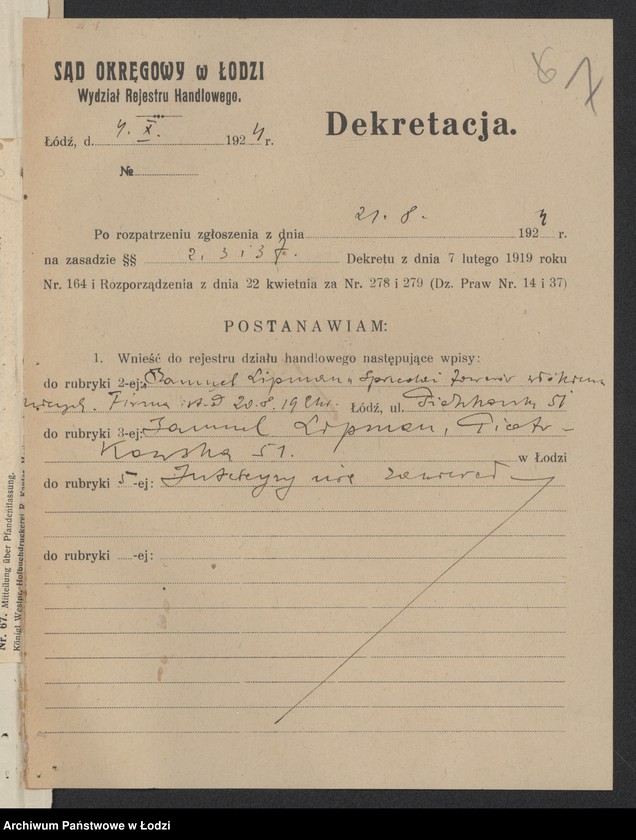 SĄD OKRĘGOWY w ŁODZI
Wydział Rejestru Handlowego.
Łódź, d. 4. X. 1924 r.
Dekretacja.
№
Po rozpatrzeniu zgłoszenia z dnia 21. 8. 1924 r.
na zasadzie §§ 2, 3 i 37. Dekretu z dnia 7 lutego 1919 roku
Nr. 164 i Rozporządzenia z dnia 22 kwietnia za Nr. 278 i 279 (Dz. Praw Nr. 14 i 37)
POSTANAWIAM:
1. Wnieść do rejestru działu handlowego następujące wpisy:
do rubryki 2-ej: "Samuel Lipman" Sprzedaż towarów włókien
niczych. Firma ist. Łódź, ul. Piotrkowska 51
do rubryki 3-ej: Samuel Lipman, Piotr-
kowska 51. w Łodzi
do rubryki 5-ej: Intercyzy nie zawarł
do rubryki -ej:
Nr. 67. Mitteilung über Pfandentlassung.
Königl Westpr. Hofbuchdruckerei
Archiwum Państwowe w Łodzi